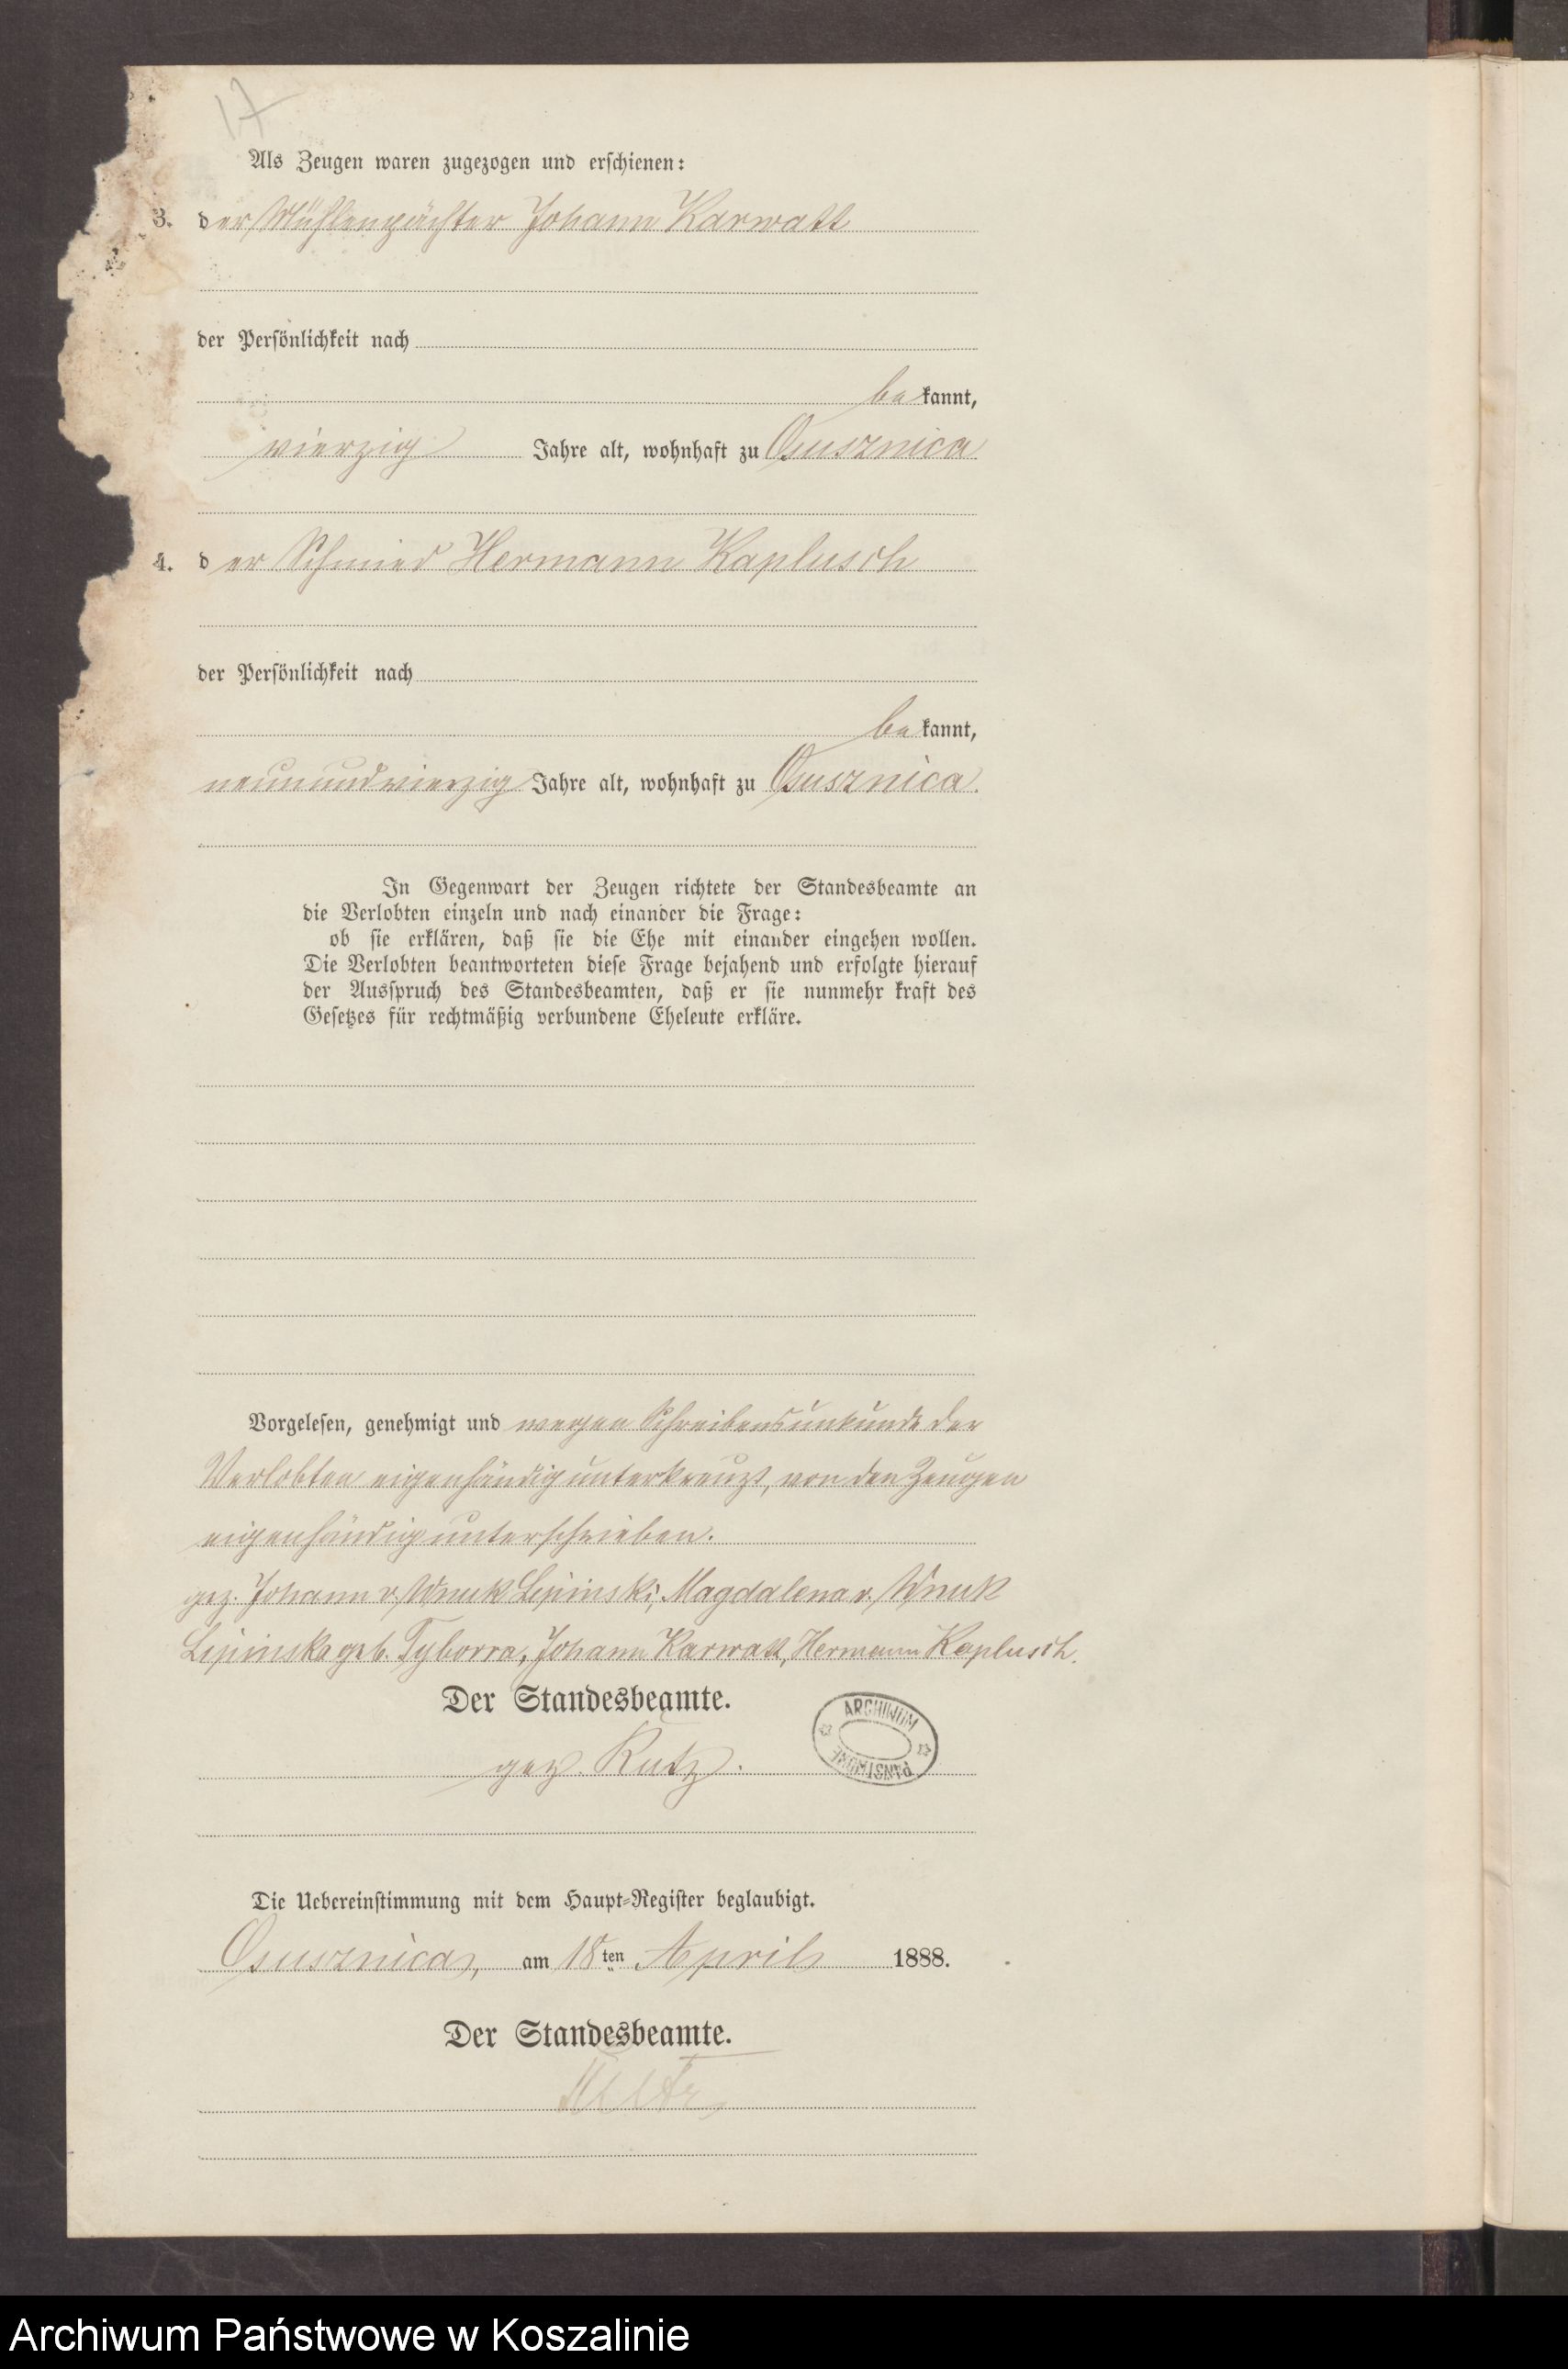 17
Als Zeugen waren zugezogen und erschienen:
3. der Mühlenpächter Johann Karwatt
der Persönlichkeit nach
bekannt,
vierzig Jahre alt, wohnhaft zu Osusznica
4. der Schmied Hermann Kaplusch
der Persönlichkeit nach
bekannt,
neunundvierzig Jahre alt, wohnhaft zu Osusznica.
In Gegenwart der Zeugen richtete der Standesbeamte an
die Verlobten einzeln und nach einander die Frage:
ob sie erklären, daß sie die Ehe mit einander eingehen wollen.
Die Verlobten beantworteten diese Frage bejahend und erfolgte hierauf
der Ausspruch des Standesbeamten, daß er sie nunmehr kraft des
Gesetzes für rechtmäßig verbundene Eheleute erkläre.
Vorgelesen, genehmigt und wegen Schreibensunkunde der
Verlobten eigenhändig unterkreuzt, von den Zeugen
eigenhändig unterschrieben.
gez. Johann v. Wnuk Lipinski, Magdalena v. Wnuk
Lipinska geb. Tyborra, Johann Karwatt, Hermann Kaplusch.
Der Standesbeamte.
gez. Kutz.
ARCHIWUM
PAŃSTWOWE
Die Uebereinstimmung mit dem Haupt-Register beglaubigt.
Osusznica, am 18ten April 1888.
Der Standesbeamte.
Kutz
Archiwum Państwowe w Koszalinie